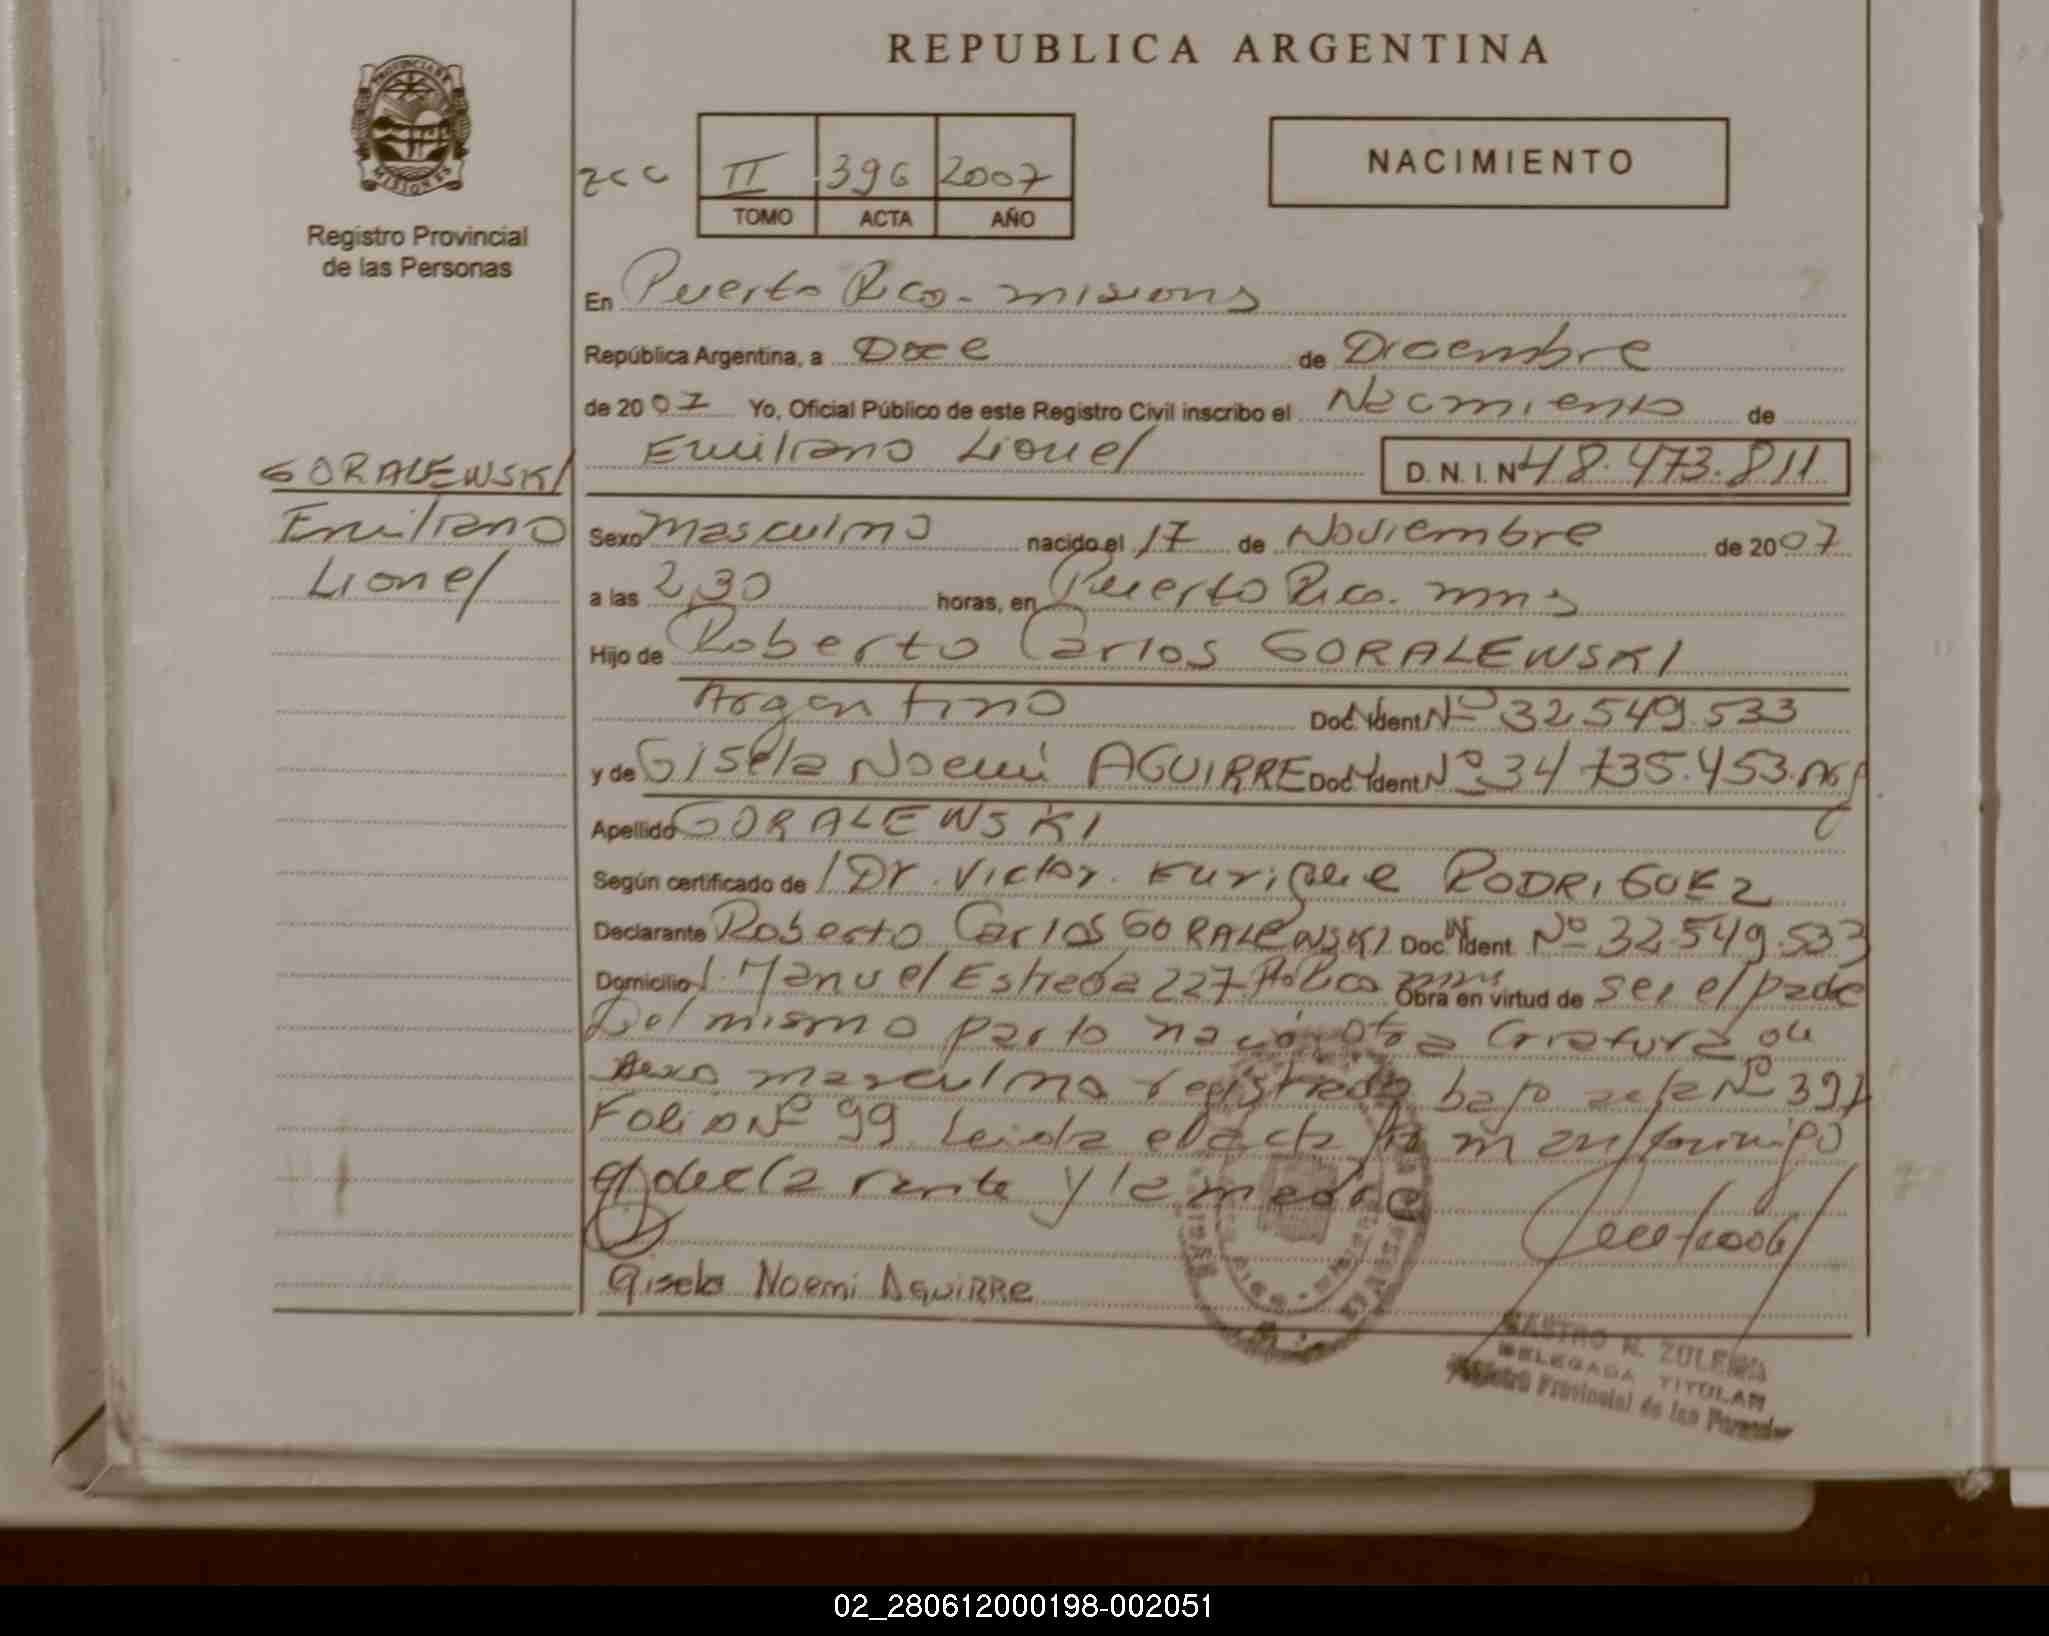 REPUBLICA ARGENTINA
PROVINCIA DE MISIONES
Registro Provincial
de las Personas
II 396 2007
TOMO ACTA AÑO
NACIMIENTO
En Puerto Rico - misiones
República Argentina, a Doce de Diciembre
de 2007 Yo, Oficial Público de este Registro Civil inscribo el Nacimiento de
Emiliano Lionel D.N.I. Nº 48.473.811
GORALEWSKI
Emiliano
Lionel
Sexo Masculino nacido el 17 de Noviembre de 2007
a las 2,30 horas, en Puerto Rico. mns
Hijo de Roberto Carlos GORALEWSKI
Argentino Doc. Ident. Nº 32.549.533
y de Gisela Noemi AGUIRRE Doc. Ident. Nº 34.735.453. Arg
Apellido GORALEWSKI
Según certificado de Dr. Victor. Enrique RODRIGUEZ
Declarante Roberto Carlos GORALEWSKI Doc. Ident. Nº 32.549.533
Domicilio J. Manuel Estrada 227 - Pto Rico mns Obra en virtud de ser el padre
Del mismo parto nació otra Criatura de
sexo masculino registrada bajo acta Nº 397
Folio Nº 99. Leida el acta
el declarante y la madre
Gisela Noemi Aguirre
CASTRO N. ZULEMA
DELEGADA TITULAR
Registro Provincial de las Personas
02_280612000198-002051